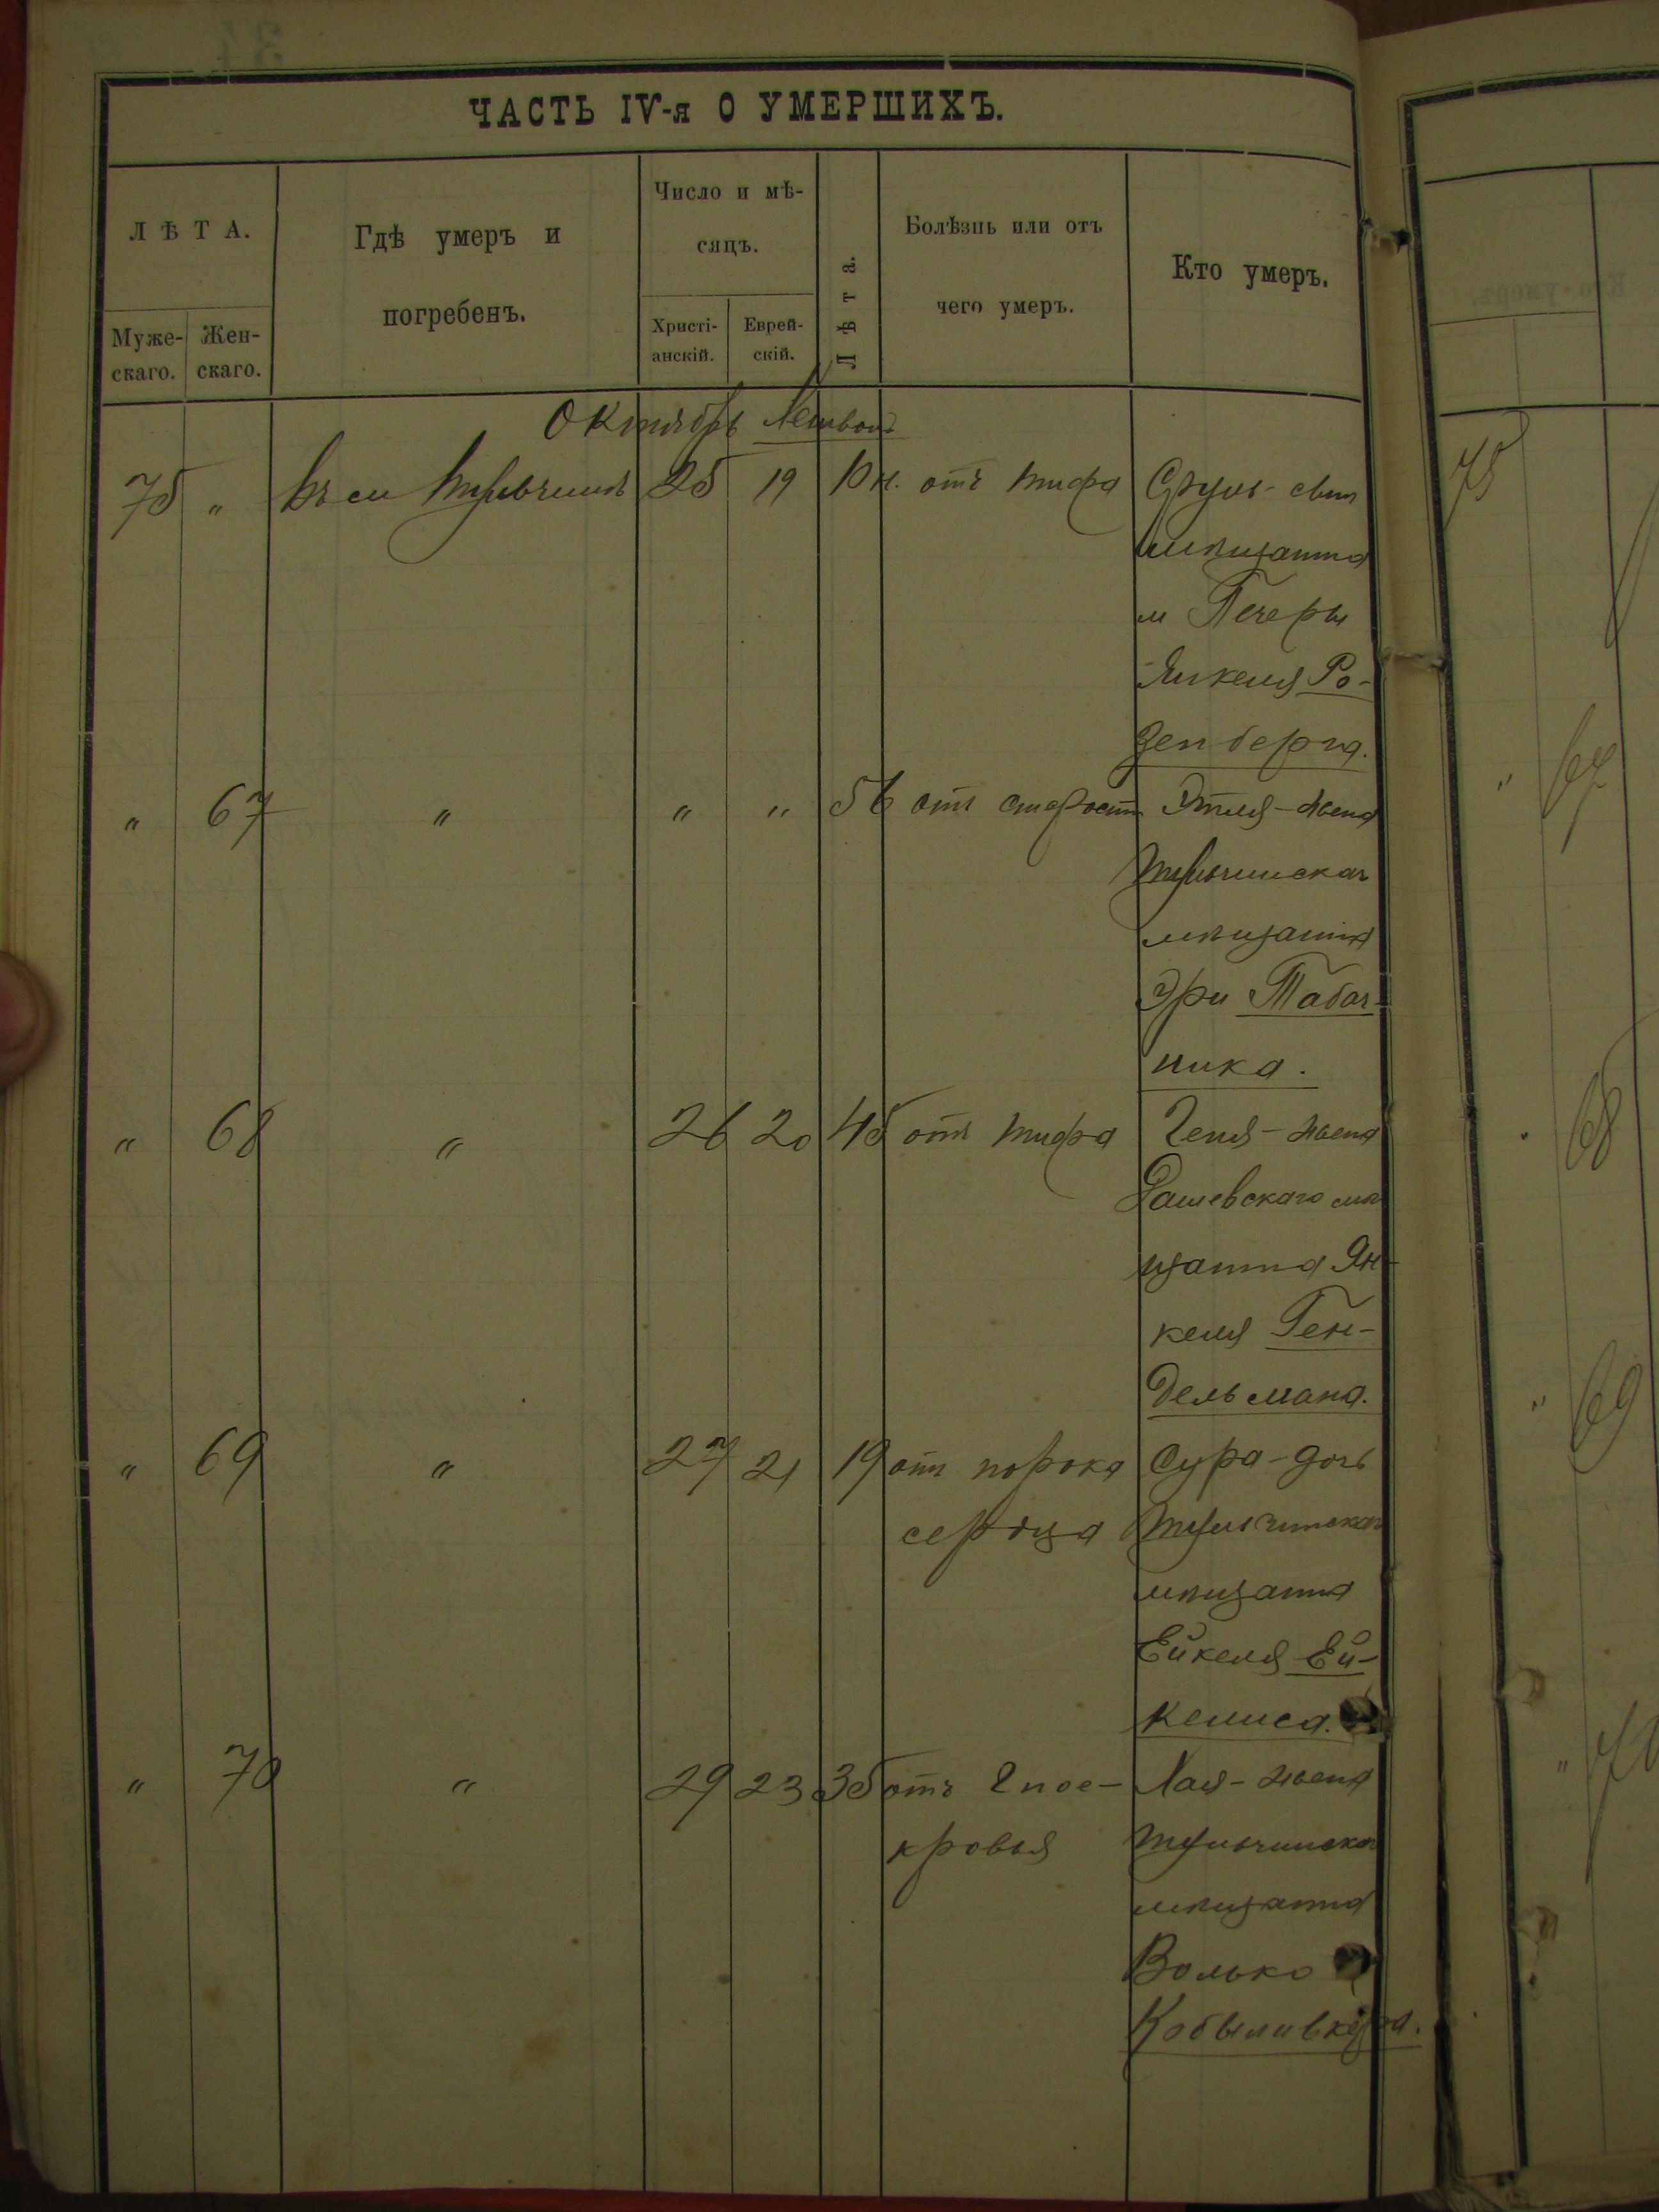 ЧАСТЬ IV-я О УМЕРШИХЪ.
ЛѢТА.
Муже-
скаго.
Жен-
скаго.
Гдѣ умеръ и
погребенъ.
Число и мѣ-
сяцъ.
Христі-
анскій.
Еврей-
скій.
Лѣта.
Болѣзнь или отъ
чего умеръ.
Кто умеръ.
Октябрь
75 " Въ м Тульчинѣ 25 19 отъ тифа Сруль - сынъ
мѣщанина
м Печеры
Янкеля Ро-
зенберга.
" 67 " " " 56 отъ старости Этля - жена
Тульчинскаго
мѣщанина
Эри Табач-
ника.
" 68 " 26 20 45 отъ тифа Геня - жена
Рашевскаго мѣ
щанина Ян-
келя Ген-
дельмана.
" 69 " 27 21 19 отъ порока Сура - дочь
сердца Тульчинскаго
мѣщанина
Ейкеля Ей-
келиса.
" 70 " 29 23 35 отъ Хая - жена
кровья Тульчинскаго
мѣщанина
Волько
Кобыливкера.
75
" 67
68
" 69
" 70